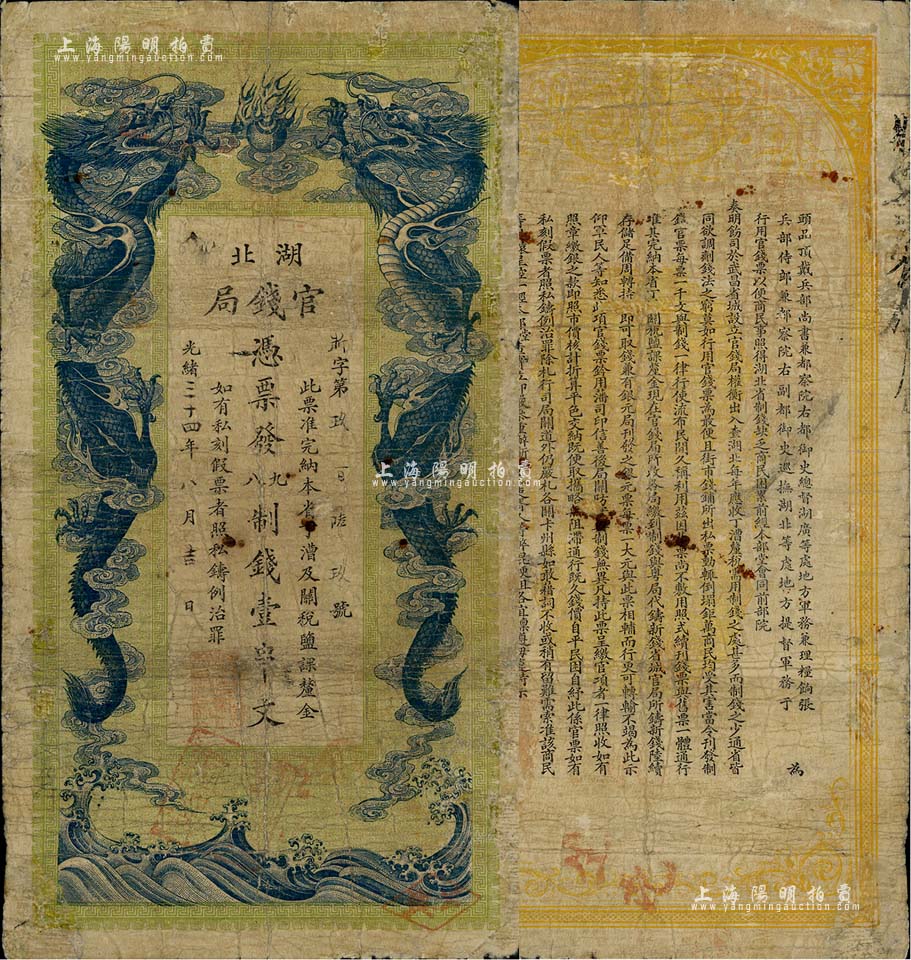 上海陽明拍賣
www.yangmingauction.com
湖北
官錢局
憑票發九八制錢壹串文
此票准完納本省丁漕及關稅鹽課釐金
如有私刻假票者照私鑄例治罪
光緒三十四年八月 日
頭品頂戴兵部尚書兼都察院右都御史總督湖廣等處地方軍務兼理糧餉張
兵部侍郎兼都察院右副都御史巡撫湖北等處地方提督軍務于 為
行用官錢票以便商民事照得湖北省制錢缺乏商民困累前經本部堂會同前部院
奏明飭司於武昌省城設立官錢局權衡出入查湖北每年應收丁漕釐稅需用制錢之處甚多而制錢之少通省皆
同欲調劑錢法之窮莫如行用官錢票為最便且街市錢鋪所出私票動輒倒塌鉅萬商民均受其害當令刊發制
錢官票每票一千文與制錢一律行使流布民間久稱利用茲因舊票尚不敷用照式續刊錢票與舊票一體通行
准其完納本省丁 關稅鹽課釐金現在官錢局所收各局繳到制錢與粵局代鑄新錢省城官局所鑄新錢陸續
存儲足備周轉持 即可取錢兼有銀元局刊發之銀元票每票一大元與此票相輔而行更可轉輸不竭為此示
仰軍民人等知悉此項官錢票鈐用藩司印信善後局關防 制錢無異凡持此票呈繳官項者一律照收如有
照章繳銀之款即照市價核計折算平色交納既便取攜略無阻滯通行既久錢價自平民困自紓此係官票如有
私刻假票者照私鑄例治罪除札行司局關道外仍嚴札各關卡州縣如敢藉詞不收或稍有留難需索准該商民
上海陽明拍賣
www.yangmingauction.com
上海陽明拍賣
www.yangmingauction.com